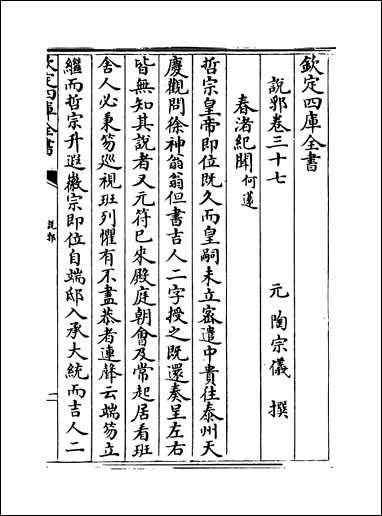 欽定四庫全書
說郛卷三十七
元 陶宗儀 撰
春渚紀聞何薳
哲宗皇帝即位既久而皇嗣未立密遣中貴往泰州天
慶觀問徐神翁翁但書吉人二字授之既還奏呈左右
皆無知其說者又元符已來殿庭朝會及常起居看班
舍人必秉笏巡視班列懼有不盡恭者連聲云端笏立
繼而哲宗升遐徽宗即位自端邸入承大統而吉人二
欽定四庫全書
說郛
二